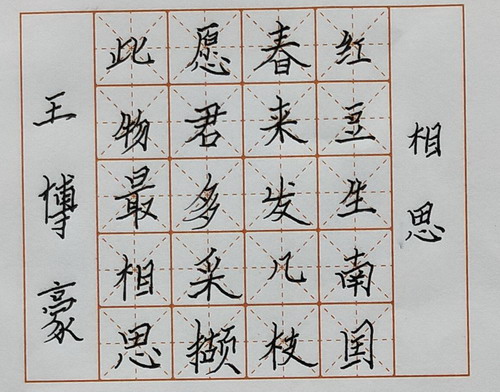 相思
红豆生南国
春来发几枝
愿君多采撷
此物最相思
王博豪